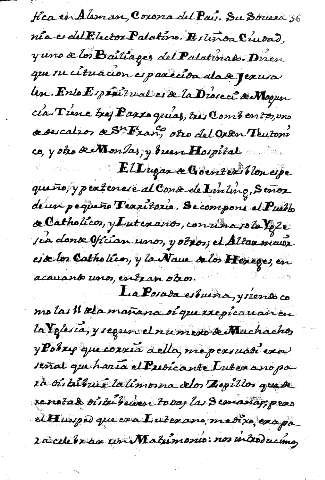 tica en Aleman, Corona del Pais. Su Sovera 56
nia es del Elector Palatino. Es linda Ciudad,
y uno de los Bailiages del Palatinado. Dizen
que su cituacion es parecida a la de Jerusa
len. En lo Espiritual es de la Diocecis de Mogun
cia Tiene tres Parroquias, tres Combentos, uno
de escalzos de Sn. Fran,co, otro del Orden Teutoni
co, y otro de Monjas, y buen Hospital
El Lugar de es pe
queño, y pertenese al Conde de Señor
de un pequeño Territorio. Se compone el Pueblo
de Catholicos, y Luteranos, con una sola Ygle
sia donde ofician unos, y otros, el Altar maior
es de los Catholicos, y la Nave de los Hereges, en
acavando unos, entran otros.
La Posada es buena, y siendo co
mo las 11 de la mañana oi que repicavan en
la Yglesia, y segun el numero de Muchachos
y Pobres que corria a ella, me persuadi era
señal que haria el Predicante Luterano pa
ra distribuir la limosna de los Zepillos que de
renota distribuien todas las Semanas, pero
el Huesped que era Luterano, me dixo, era pa
ra celebrar un Matrimonio: nos introducimos,